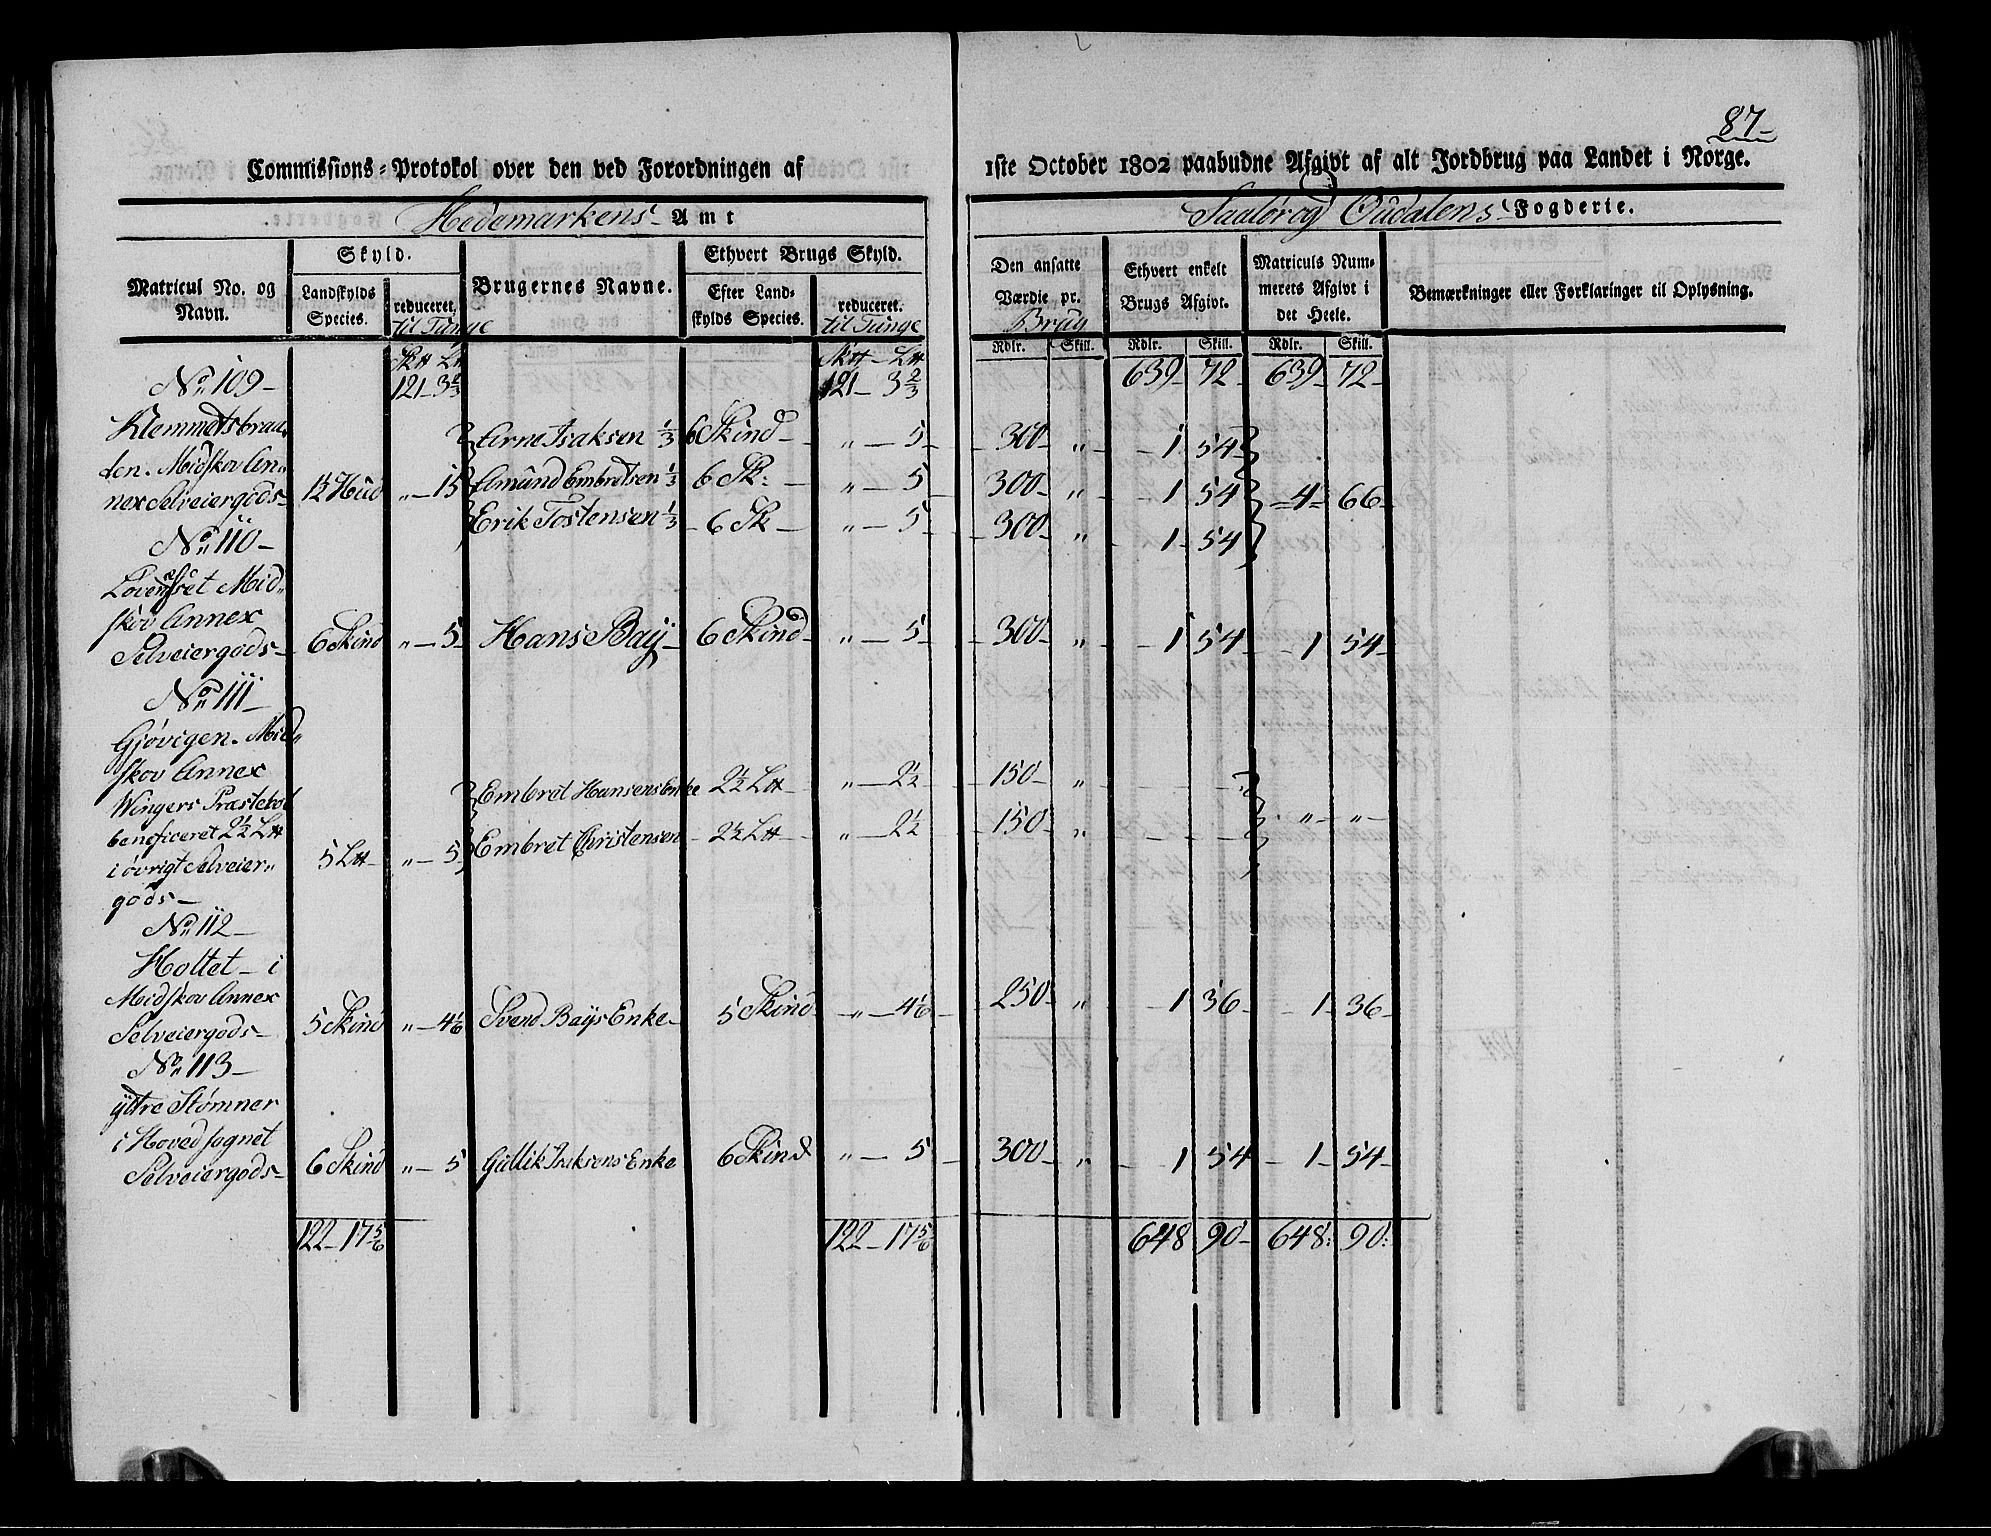 87-
Commissions-Protokol over den ved Forordningen af 1ste October 1802 paabudne Afgivt af alt Jordbrug paa Landet i Norge.
Hedemarkens Amt
Saalør og Oudalens Fogderie.
Matricul No. og Navn.
Skyld.
Landskylds Species.
reduceret.
til Tunge
Brugernes Navne.
Ethvert Brugs Skyld.
Efter Landskylds Species.
reduceret.
til Tunge
Den ansatte Værdie pr.
Brug
Ethvert enkelt Brugs Afgivt.
Matriculs Nummerets Afgivt i det Heele.
Bemærkninger eller Forklaringer til Oplysning.
Rdlr. Skill. Rdlr. Skill. Rdlr. Skill.
121 - 3 2/3 121 - 3 2/3 639 - 72 - 639 - 72 -
No 109 -
Klemmetsbraa-
ten. Midskov An-
nex Selveiergods - 1½ Hud „ - 15
Arne Isaksen ⅓ 6 Skind - „ - 5 - 300 - „ - 1 54
Amund Embretsen ⅓ 6 Sk: - „ - 5 - 300 - „ - 1 54 - 4 - 66 -
Erik Tostensen ⅓ - 6 Sk - „ - 5 - 300 - „ - 1 - 54
No 110 -
Midskov Annex
Selveiergods - 6 Skind „ - 5 - Hans Baÿ - 6 Skind - „ - 5 - 300 - „ - 1 54 - 1 54 -
No 111 -
Gjøvigen. Mid-
skov Annex
Wingers Præstebol
beneficeret 2½ L℔
i øvrigt Selveier-
gods - 5 L℔ - „ - 5
Embret Hansens Enke 2½ L℔ - „ - 2½ - 150 - „
Embret Christensen - 2½ L℔ - „ - 2½ - 150 - „ - - „ - „ -
No 112 -
Holtet - i
Midskov Annex
Selveiergods - 5 Skind „ - 4 1/6 Svend Baÿs Enke - 5 Skind - „ - 4 1/6 - 250 - „ - 1 36 - - 1 - 36 -
No 113 -
ÿttre Stømner
i Hovedsognet
Selveiergods - 6 Skind „ - 5 Gullik Isaksens Enke 6 Skind „ - 5 - 300 - „ - 1 54 - 1 - 54 -
122 - 17 5/6 122 - 17 5/6 648 90 - 648: 90: